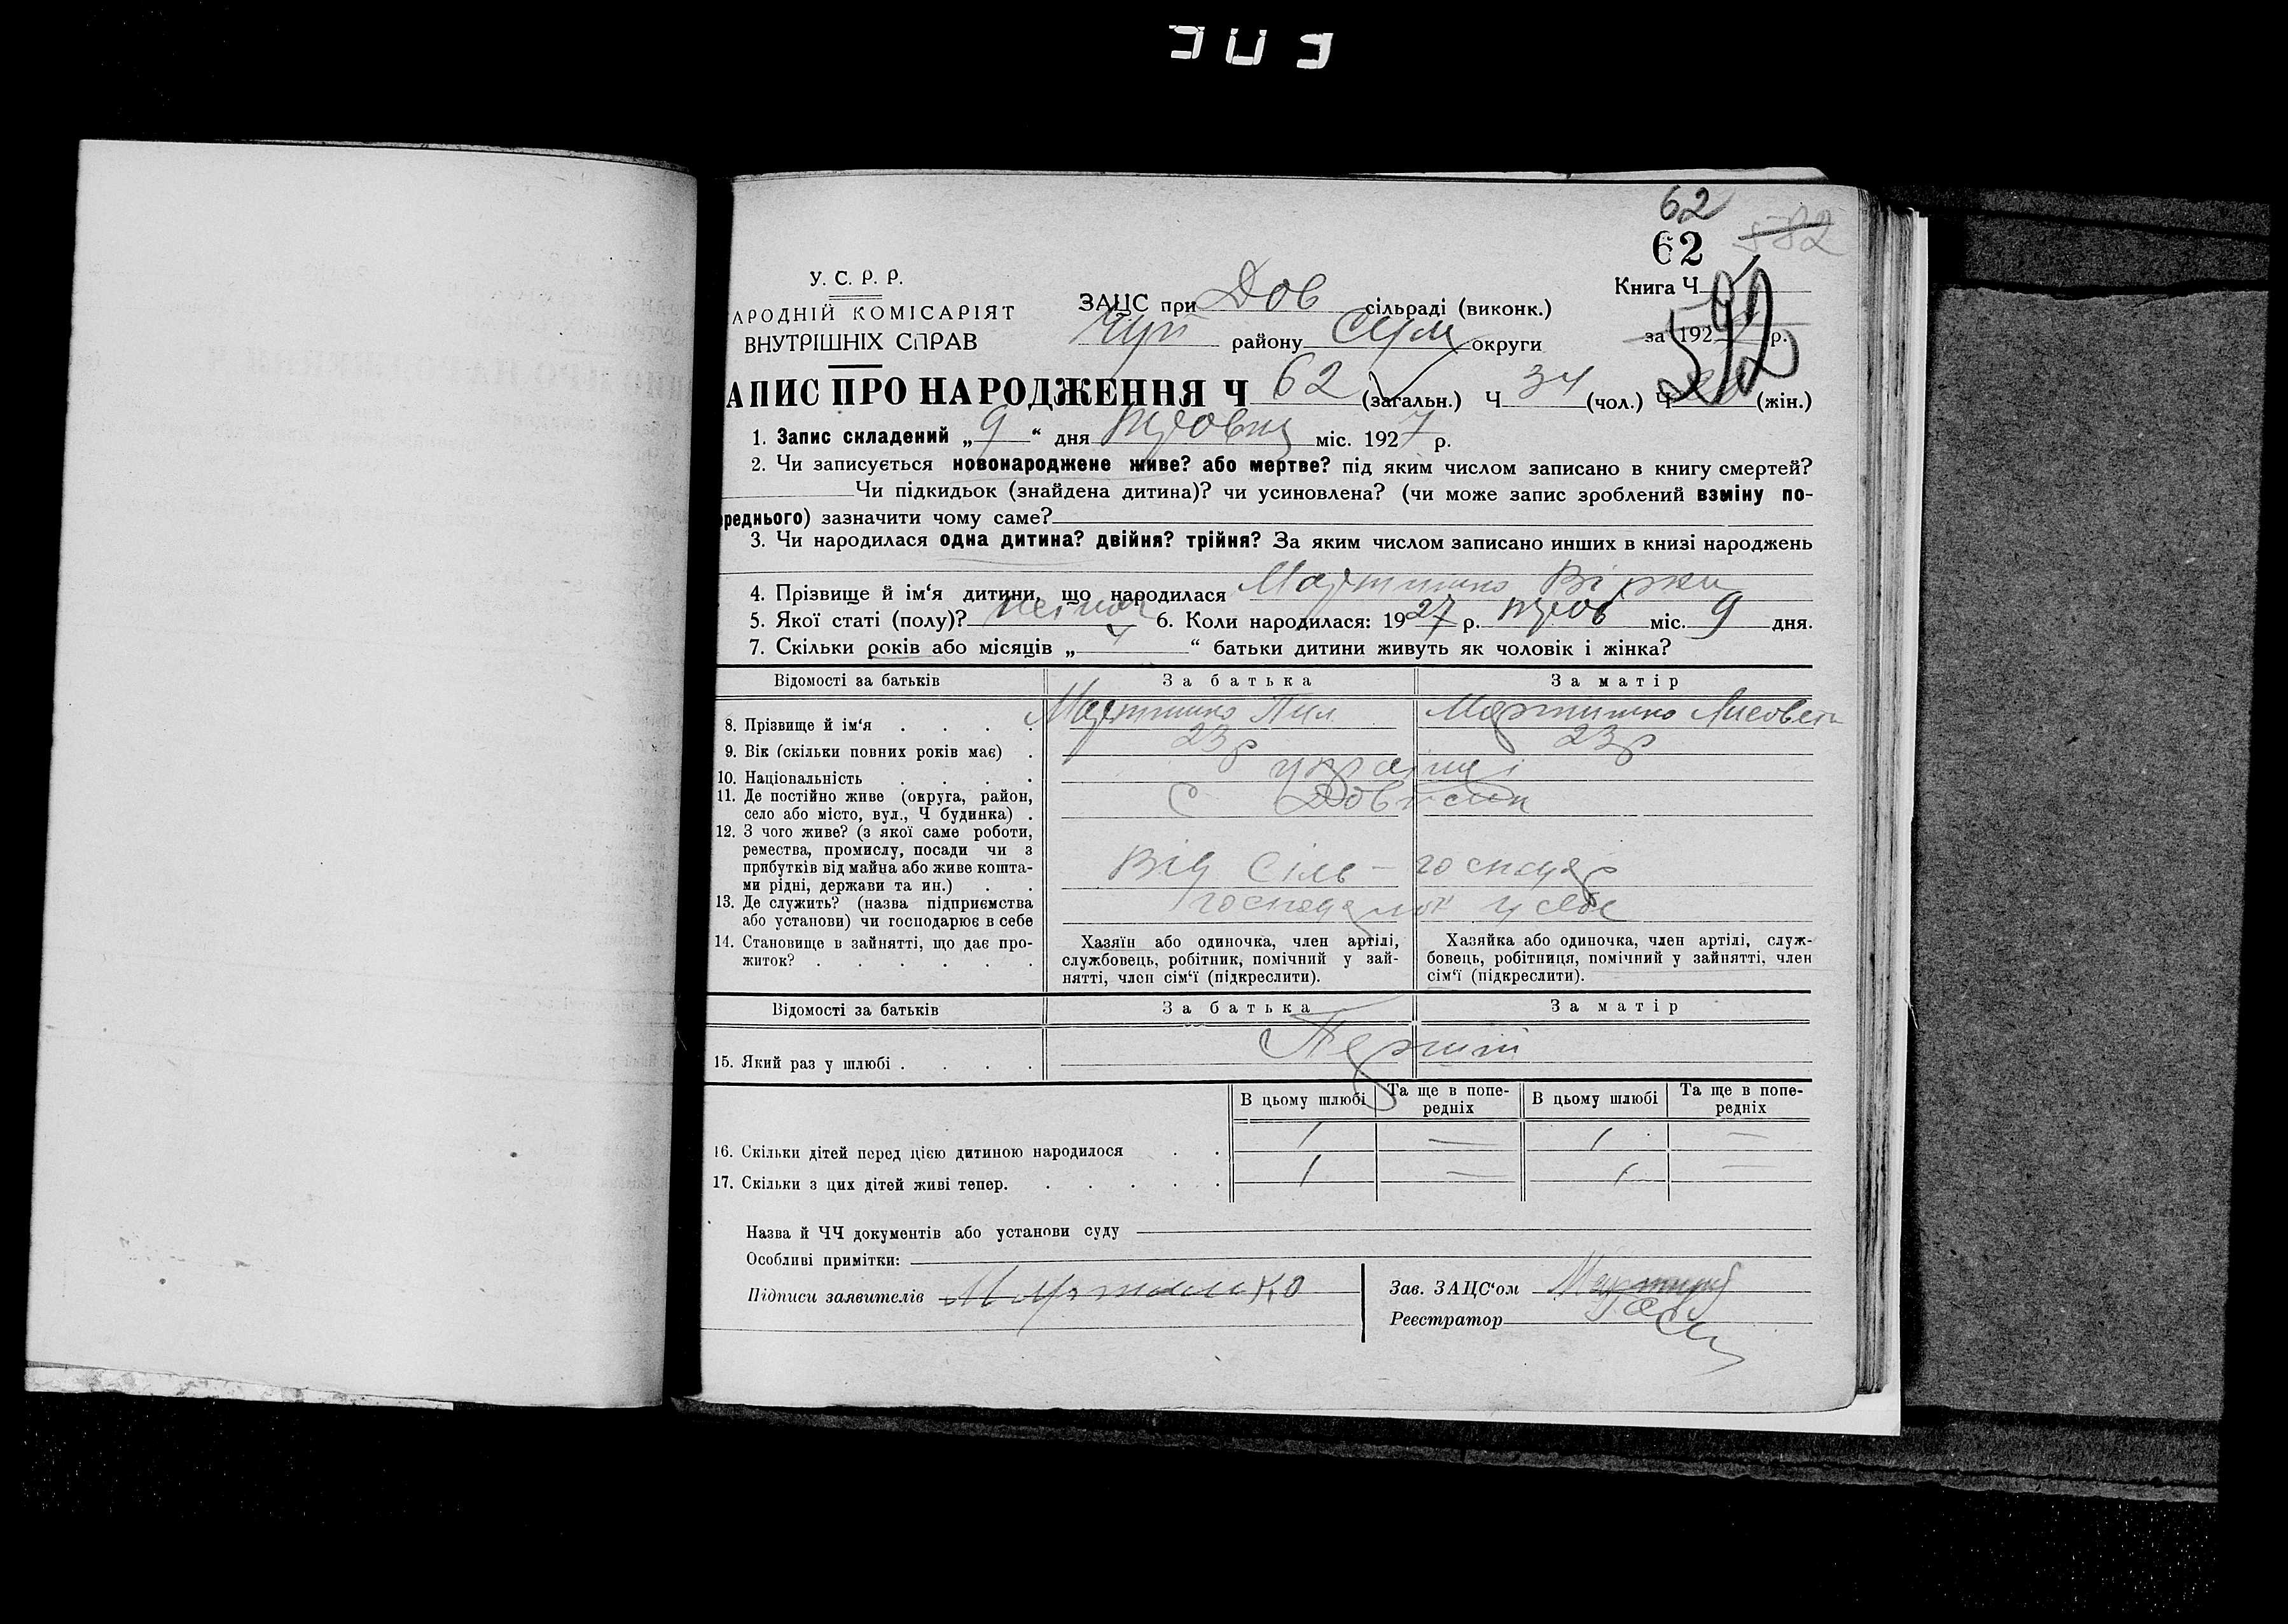 62
62 582
У. С. Р. Р.
АРОДНІЙ КОМІСАРІЯТ
ВНУТРІШНІХ СПРАВ
ЗАЦС при Дов сільраді (виконк.)
району Сум округи
Книга Ч
за 192 р.
592
АПИС ПРО НАРОДЖЕННЯ Ч 62 (загальн.) Ч 34 (чол.) Ч (жін.)
1. Запис складений „ 9 “ дня міс. 1927 р.
2. Чи записується новонароджене живе? або мертве? під яким числом записано в книгу смертей?
Чи підкидьок (знайдена дитина)? чи усиновлена? (чи може запис зроблений взміну по-
реднього) зазначити чому саме?
3. Чи народилася одна дитина? двійня? трійня? За яким числом записано инших в книзі народжень
4. Прізвище й ім‘я дитини, що народилася
5. Якої статі (полу)? 6. Коли народилася: 1927 р. міс. 9 дня.
7. Скільки років або місяців „ 4 “ батьки дитини живуть як чоловік і жінка?
Відомості за батьків За батька За матір
8. Прізвище й ім‘я . . . . Мартинко Пил Мартинко Лисовета
9. Вік (скільки повних років має) . 23 р 23 р
10. Національність . . . . україн
11. Де постійно живе (округа, район,
село або місто, вул., Ч будинка) . с
12. З чого живе? (з якої саме роботи,
ремества, промислу, посади чи з
прибутків від майна або живе кошта-
ми рідні, держави та ин.) . . Від Сіль - господар
13. Де служить? (назва підприємства
або установи) чи господарює в себе у себе
14. Становище в зайнятті, що дає про-
житок? . . . . . .
Хазяїн або одиночка, член артілі,
службовець, робітник, помічний у зай-
нятті, член сім‘ї (підкреслити).
Хазяйка або одиночка, член артілі, служ-
бовець, робітниця, помічний у зайнятті, член
сім‘ї (підкреслити).
Відомості за батьків За батька За матір
15. Який раз у шлюбі . . . . Перший
В цьому шлюбі Та ще в попе-
редніх В цьому шлюбі Та ще в попе-
редніх
16. Скільки дітей перед цією дитиною народилося . . 1 — 1 —
17. Скільки з цих дітей живі тепер. . . . . . 1 — 1 —
Назва й ЧЧ документів або установи суду
Особливі примітки:
Підписи заявителів Мартинко
Зав. ЗАЦС‘ом
Реєстратор